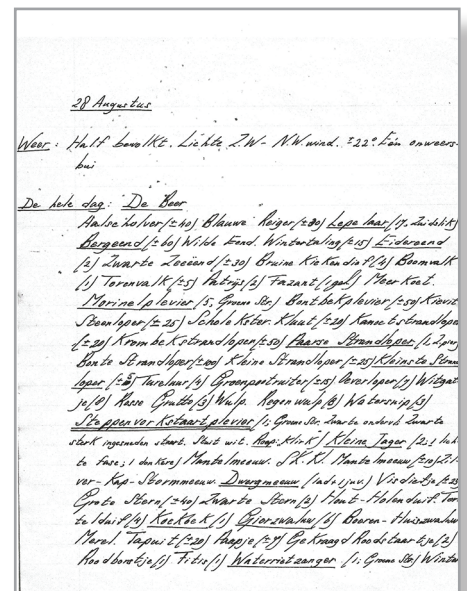 28 Augustus
Weer: Half bewolkt. Lichte Z.W- N.W.wind. ±22°. Eén onweers-
bui
De hele dag: De Beer
Aalscholver (±40) Blauwe Reiger (±80) Lepelaar (17, Zuidelijk)
Bergeend (±60) Wilde Eend. Wintertaling (±15) Eidereend
(2) Zwarte Zeeëend (±30) Bruine Kiekendief (4) Boomvalk
(1) Torenvalk (±5) Patrijs (2) Fazant (1 gal) Meerkoet.
Morinelplevier (5, Groene Str) Bontbekplevier (±50) Kievit
Steenloper (±25) Scholekster. Kluut (±20) Kanoetstrandloper
(±20) Krombekstrandloper (±50) Paarse Strandloper (1,
Bonte Strandloper Kleine Strandloper (±25) Kleinste Stran
loper Tureluur (4) Groenpootruiter (±15) Oeverloper (7) Witgat
je (8) Rosse Grutto (3) Wulp. Regenwulp (8) Watersnip (3)
Steppenvorkstaartplevier (1; Groene Str. Zwarte onderzij Zwarte
sterk ingesneden staart. Stuit wit. Roep: Klirk) Kleine Jager (2; 1 lich
te fase; 1 donkere) Mantelmeeuw. Sk. Kl. Mantelmeeuw (±10) Zil
ver- Kap- Stormmeeuw. Dwergmeeuw (1 ad e 1 juv.) Visdiefje
Grote Stern (±40) Zwarte Stern (2) Hout- Holenduif. Tor
telduif (4) Koekoek (1) Gierzwaluw (6) Boeren- Huiszwaluw
Merel. Tapuit (±20) Paapje Gekraagd Roodstaartje (2)
Roodborstje (1) Fitis (1) Waterrietzanger (1; Groene Str) Winter